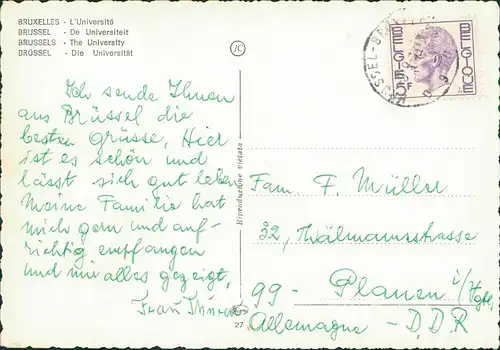 BRUXELLES - L'Université
BRUSSEL - De Universiteit
BRUSSELS - The University
BRÜSSEL - Die Universität
BELGIQUE
BELGIË
5F
Ich sende Ihnen
aus Brüssel die
besten Grüsse, Hier
ist es schön und
lässt sich gut leben
Meine Familie hat
mich gern und auf-
richtig empfangen
und mir alles gezeigt,
Frau
Riproduzione vietata
27
Fam. F. Müller
32, Thälmannstrasse
99 - Plauen i/Vgtl.
Allemagne - D.D.R